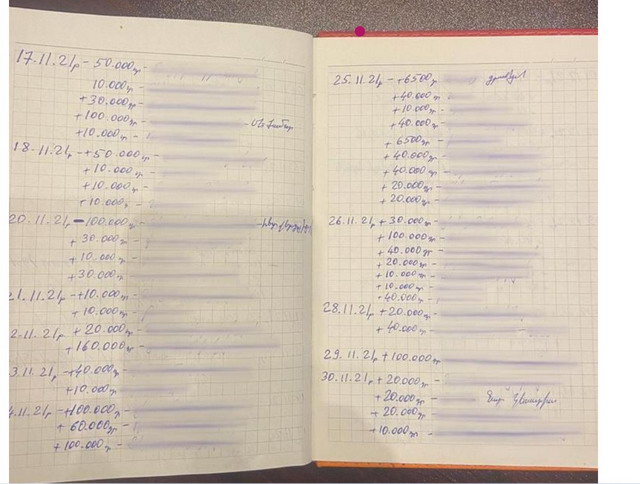 17.11.21թ – 50.000դր –
10.000դր –
+30.000դր –
+100.000դր –
+10.000դր –
18.11.21թ – +50.000դր –
+10.000դր –
+10.000դր –
+10.000դր –
20.11.21թ – 100.000դր –
+30.000դր –
+10.000դր –
+30.000դր –
21.11.21թ – +10.000դր –
+10.000դր –
2.11.21թ +20.000դր –
+160.000դր –
3.11.21թ – +40.000դր –
+10.000դր –
4.11.21թ – +100.000դր –
+60.000դր –
+100.000դր –
25.11.21թ – +6500դր
+40.000դր –
+10.000դր –
+40.000դր –
+6500դր –
+40.000դր –
+40.000դր –
+20.000դր –
+20.000դր –
26.11.21թ +30.000դր –
+100.000դր –
+40.000դր –
+20.000դր –
+10.000դր –
+10.000դր –
+40.000դր –
28.11.21թ +20.000դր –
+40.000դր –
29.11.21թ +100.000դր
30.11.21թ +20.000դր –
+20.000դր –
+20.000դր –
+10.000դր –